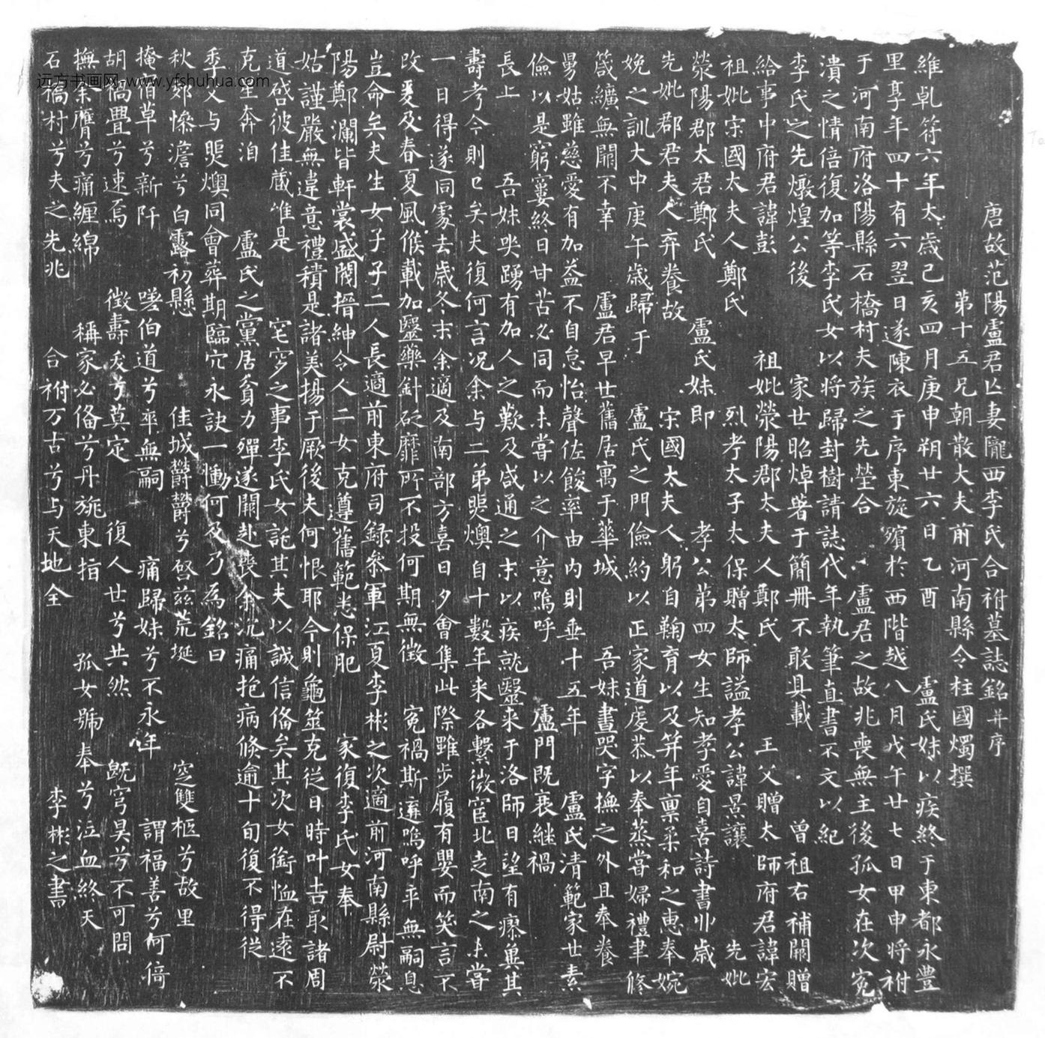 唐故范陽盧君亡妻隴西李氏合祔墓誌銘 并序
第十五兄朝散大夫前河南縣令柱國燭撰
維乹符六年太歲己亥四月庚申朔廿六日乙酉 盧氏妹以疾終于東都永豊
里享年四十有六翌日遂陳衣于序東旋殯於西階越八月戊午廿七日甲申將祔
于河南府洛陽縣石橋村夫族之先塋合 盧君之故兆喪無主後孤女在次寃
潰之情倍復加等李氏女以將歸封樹請誌代年執筆直書不文以紀
李氏之先燉煌公後 家世昭焯著于簡冊不敢具載 曾祖右補闕贈
給事中府君諱彭 祖妣滎陽郡太夫人鄭氏 王父贈太師府君諱宏
祖妣宋國太夫人鄭氏 烈考太子太保贈太師謚孝公諱景讓 先妣
滎陽郡太君鄭氏 盧氏妹即 孝公第四女生知孝愛自喜詩書丱歲
先妣郡君夫人弃養故 宋國太夫人躬自鞠育以及笄年禀柔和之惠奉婉
娩之訓大中庚午歲歸于 盧氏之門儉約以正家道虔恭以奉蒸嘗婦禮聿修
箴纊無闕不幸 盧君早世舊居寓于華城 吾妹晝哭字撫之外且奉養
舅姑雖慈愛有加益不自怠怡聲佐餕率由內則垂十五年 盧氏清範家世素
儉以是窮窶終日甘苦必同而未嘗以之介意嗚呼 盧門既衰継禍
長上 吾妹哭踴有加人之歎及咸通之末以疾就醫来于洛師日望有瘳兾其
壽考今則已矣夫復何言况余与二弟煚燠自十數年来各繫微宦北走南之未嘗
一日得遂同處去歲冬末余適及南部方喜日夕會集此際雖步履有嬰而笑言不
改爰及春夏風候載加醫藥針砭靡所不投何期無徵 寃禍斯遘嗚呼平無嗣息
豈命矣夫生女子子二人長適前東府司録叅軍江夏李彬之次適前河南縣尉滎
陽鄭灛皆軒裳盛閥搢紳令人二女克遵舊範悉保肥 家復李氏女奉
姑謹嚴無違意禮積是諸美揚于厥後夫何恨耶今則龜筮克從日時叶吉取諸周
道啓彼佳藏惟是 宅穸之事李氏女託其夫以誠信俻矣其次女銜恤在遠不
克星奔洎 盧氏之黨居貧力殫遂闕赴喪余沉痛抱病倏逾十旬復不得從
季父与煚燠同會葬期臨穴永訣一慟何及乃為銘曰
秋郊慘澹兮白露初縣 佳城欝欝兮啓兹荒埏 窆雙柩兮故里
掩伯草兮新阡 嗟伯道兮卒無嗣 痛歸妹兮不永年 謂福善兮何倚
胡禍疊兮速焉 徵壽爰兮莫定 復人世兮共然 旣穹昊兮不可問
撫余膺兮痛纏綿 稱家必俻兮丹旐東指 孤女號奉兮泣血終天
石橋村兮夫之先兆 合祔万古兮与天地全 李彬之書
远方书画网-www.yfshuhua.com